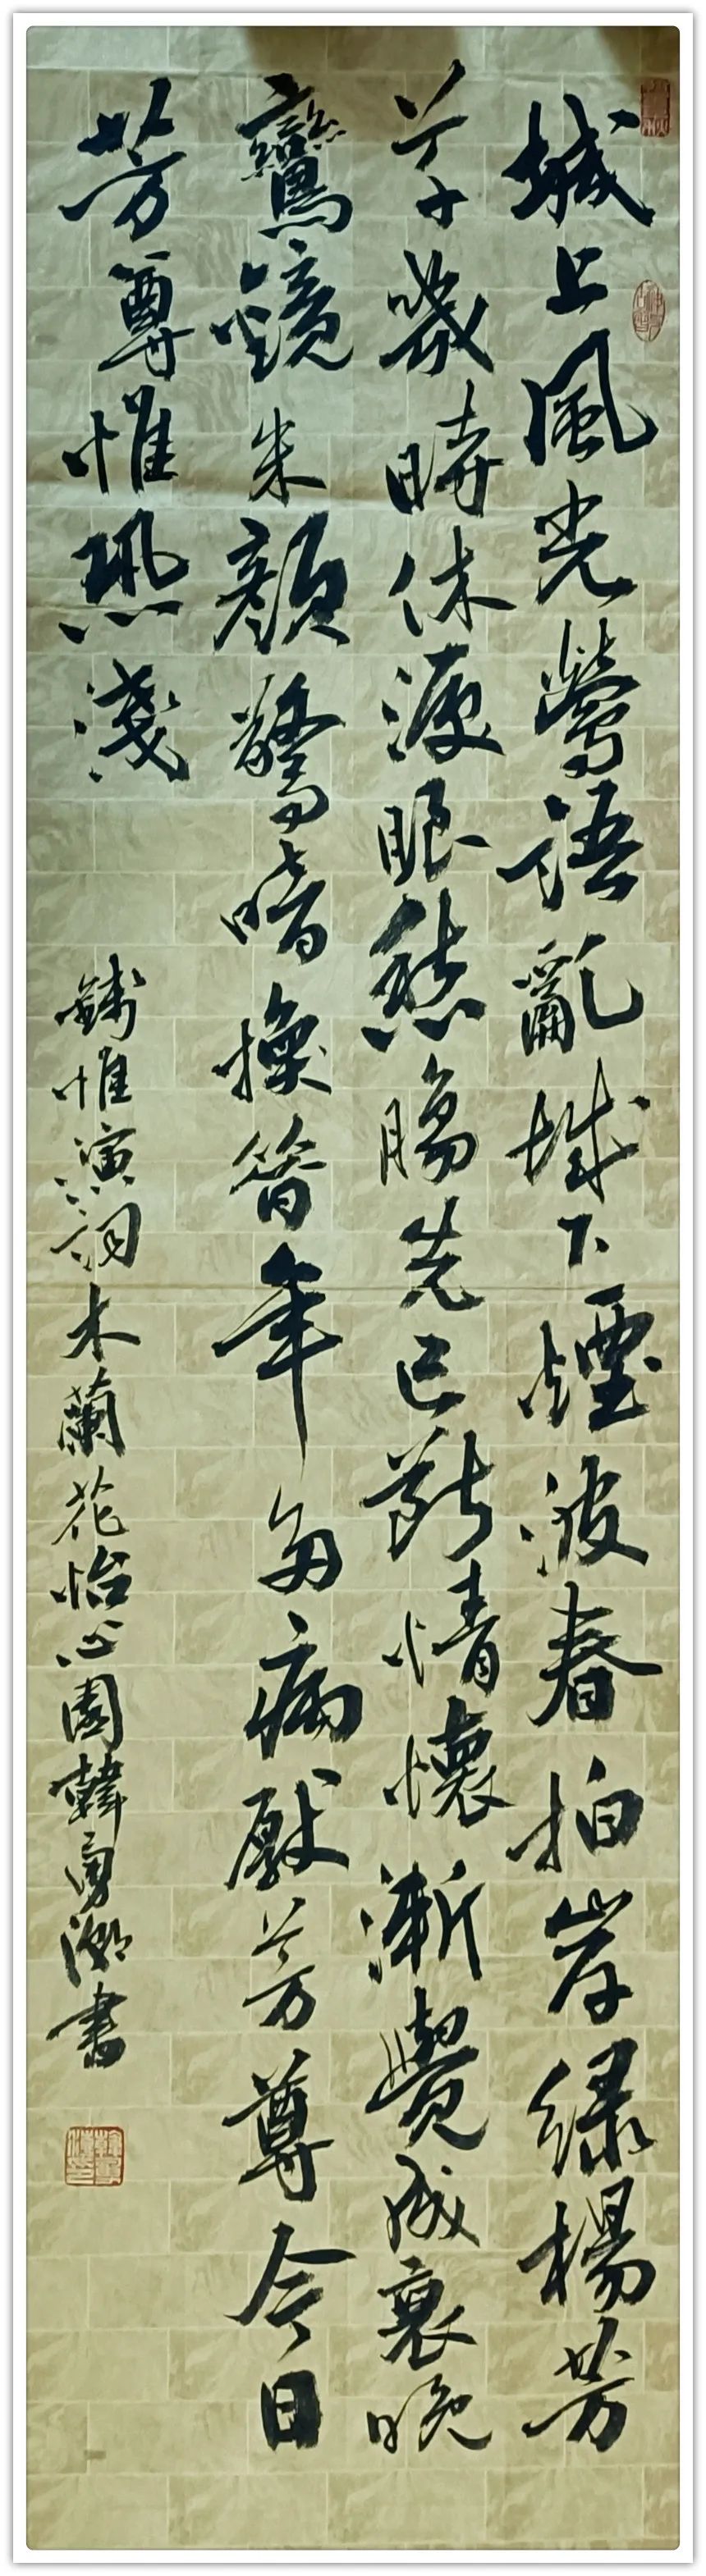 城上風光鶯語亂城下煙波春拍岸緑楊芳
草幾時休淚眼愁腸先已斷情懷漸覺成衰晚
鸞鏡朱顔驚暗換昔年多病厭芳尊今日
芳尊惟恐淺
錢惟演詞木蘭花怡心園韓勇書